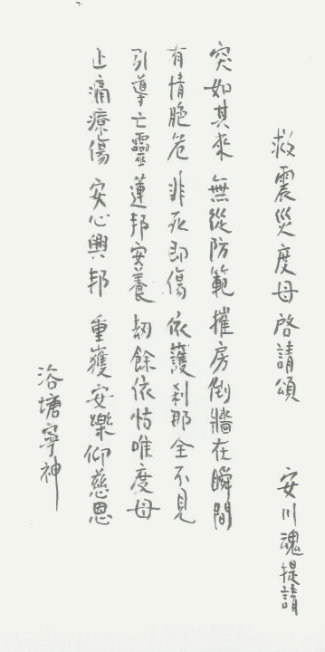 救震災度母啓請頌　安川魂提請
突如其來 無從防範 摧房倒牆在瞬間
有情脆危 非死即傷 依護剎那全不見
引導亡靈 蓮邦安養 劫餘依怙唯度母
止痛療傷 安心興邦 重獲安樂仰慈恩
浴塘寧神